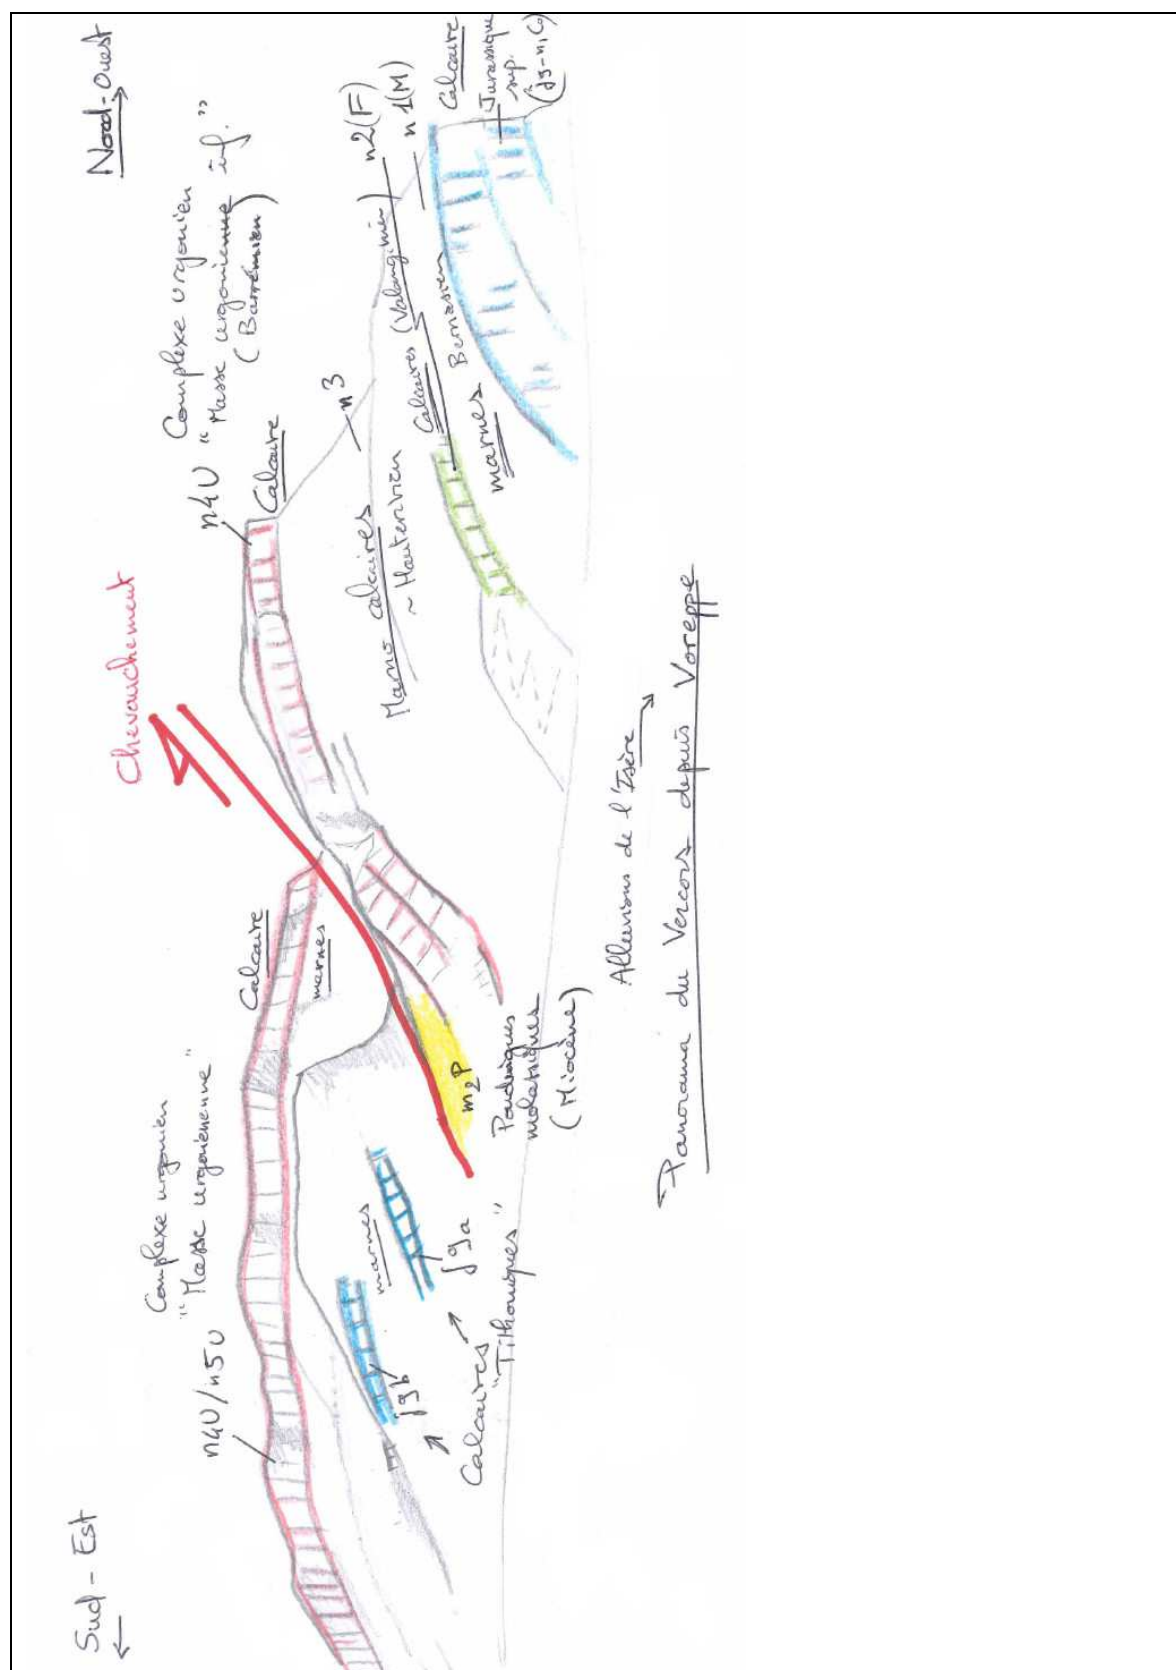 Sud - Est
Nord-Ouest
Complexe urgonien
"Masse urgonienne"
n4U/n5U
Calcaire
marnes
Chevauchement
Complexe urgonien
"Masse urgonienne inf."
(Barrémien)
n4U
Calcaire
n3
Marno calcaires
~ Hauterivien
Calcaires (Valanginien)
n2(F)
n1(M)
Berriasien
marnes
Calcaire
Jurassique
sup.
marnes
j9b
j9a
Calcaires
"Tithoniques"
m2P
Poudingues
molassiques
(Miocène)
Alluvions de l'Isère
Panorama du Vercors depuis Voreppe